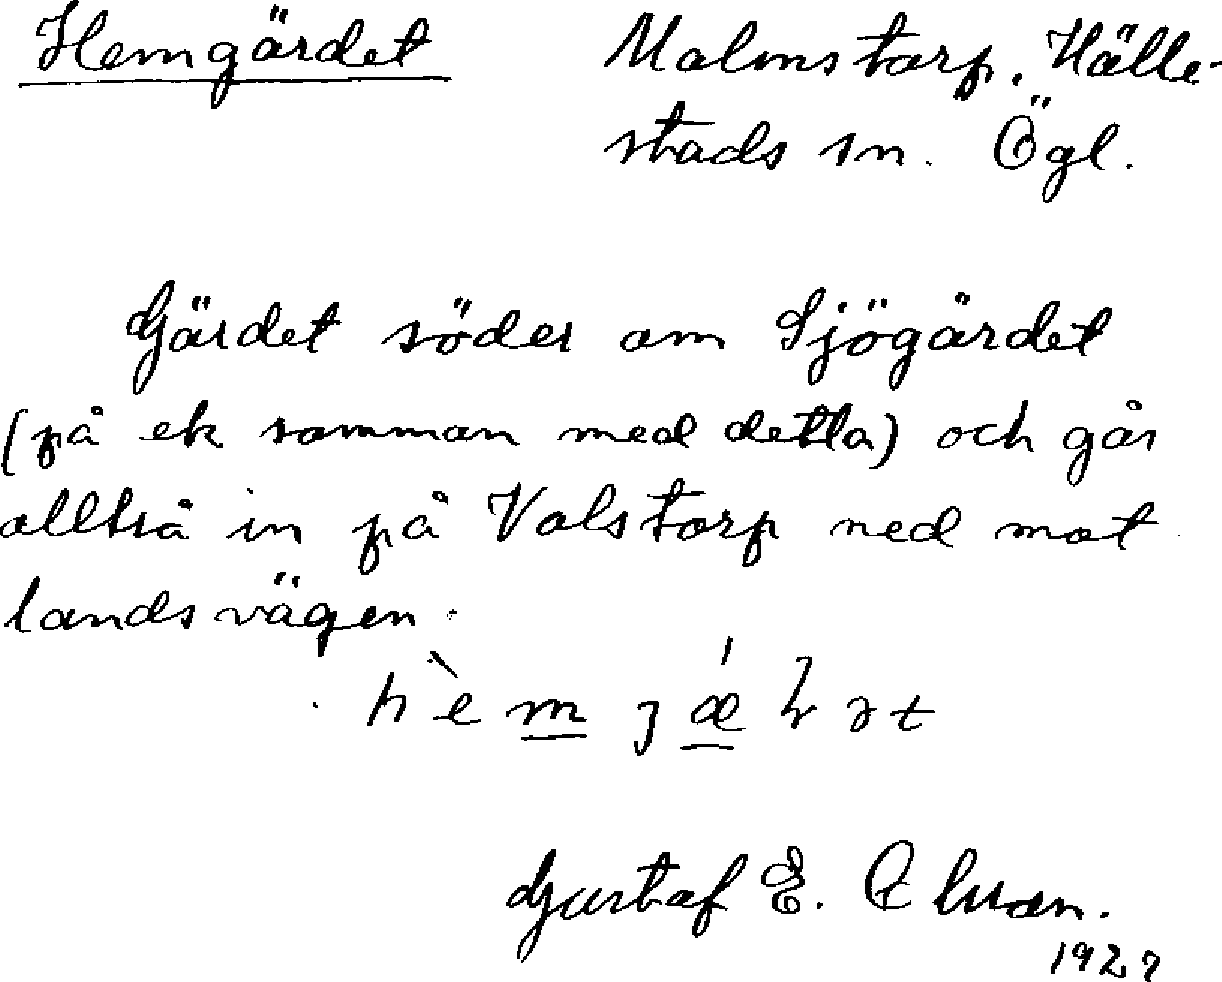 Hemgärdet Malmstorp. Hälle-
stads sn. Ögl.
Gärdet söder om Sjögärdet
(på ek samman med detta) och går
alltså in på Valstorp ned mot
landsvägen.
Gustaf E.
1927